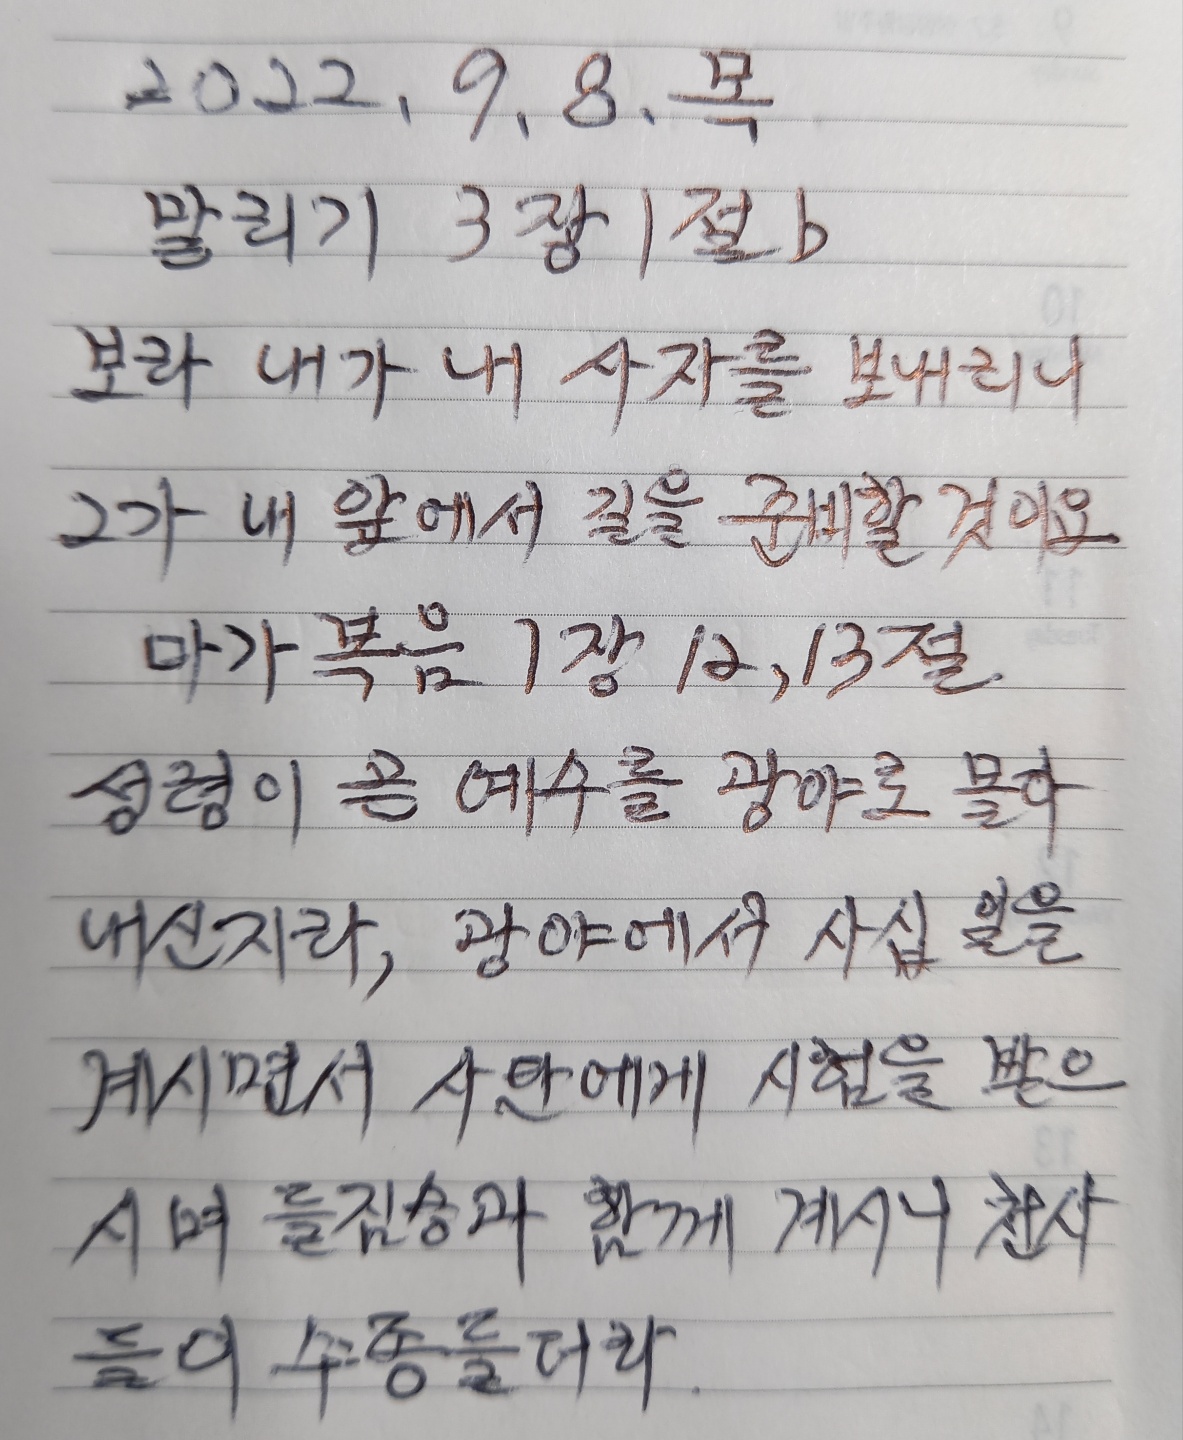 2022. 9. 8. 목
말리기 3장 1절 b
보라 내가 내 사자를 보내리니
그가 내 앞에서 길을 준비할 것이요
마가복음 1장 12, 13절.
성령이 곧 예수를 광야로 몰아
내신지라, 광야에서 사십 일을
계시면서 사탄에게 시험을 받으
시며 들짐승과 함께 계시니 천사
들이 수종들더라.